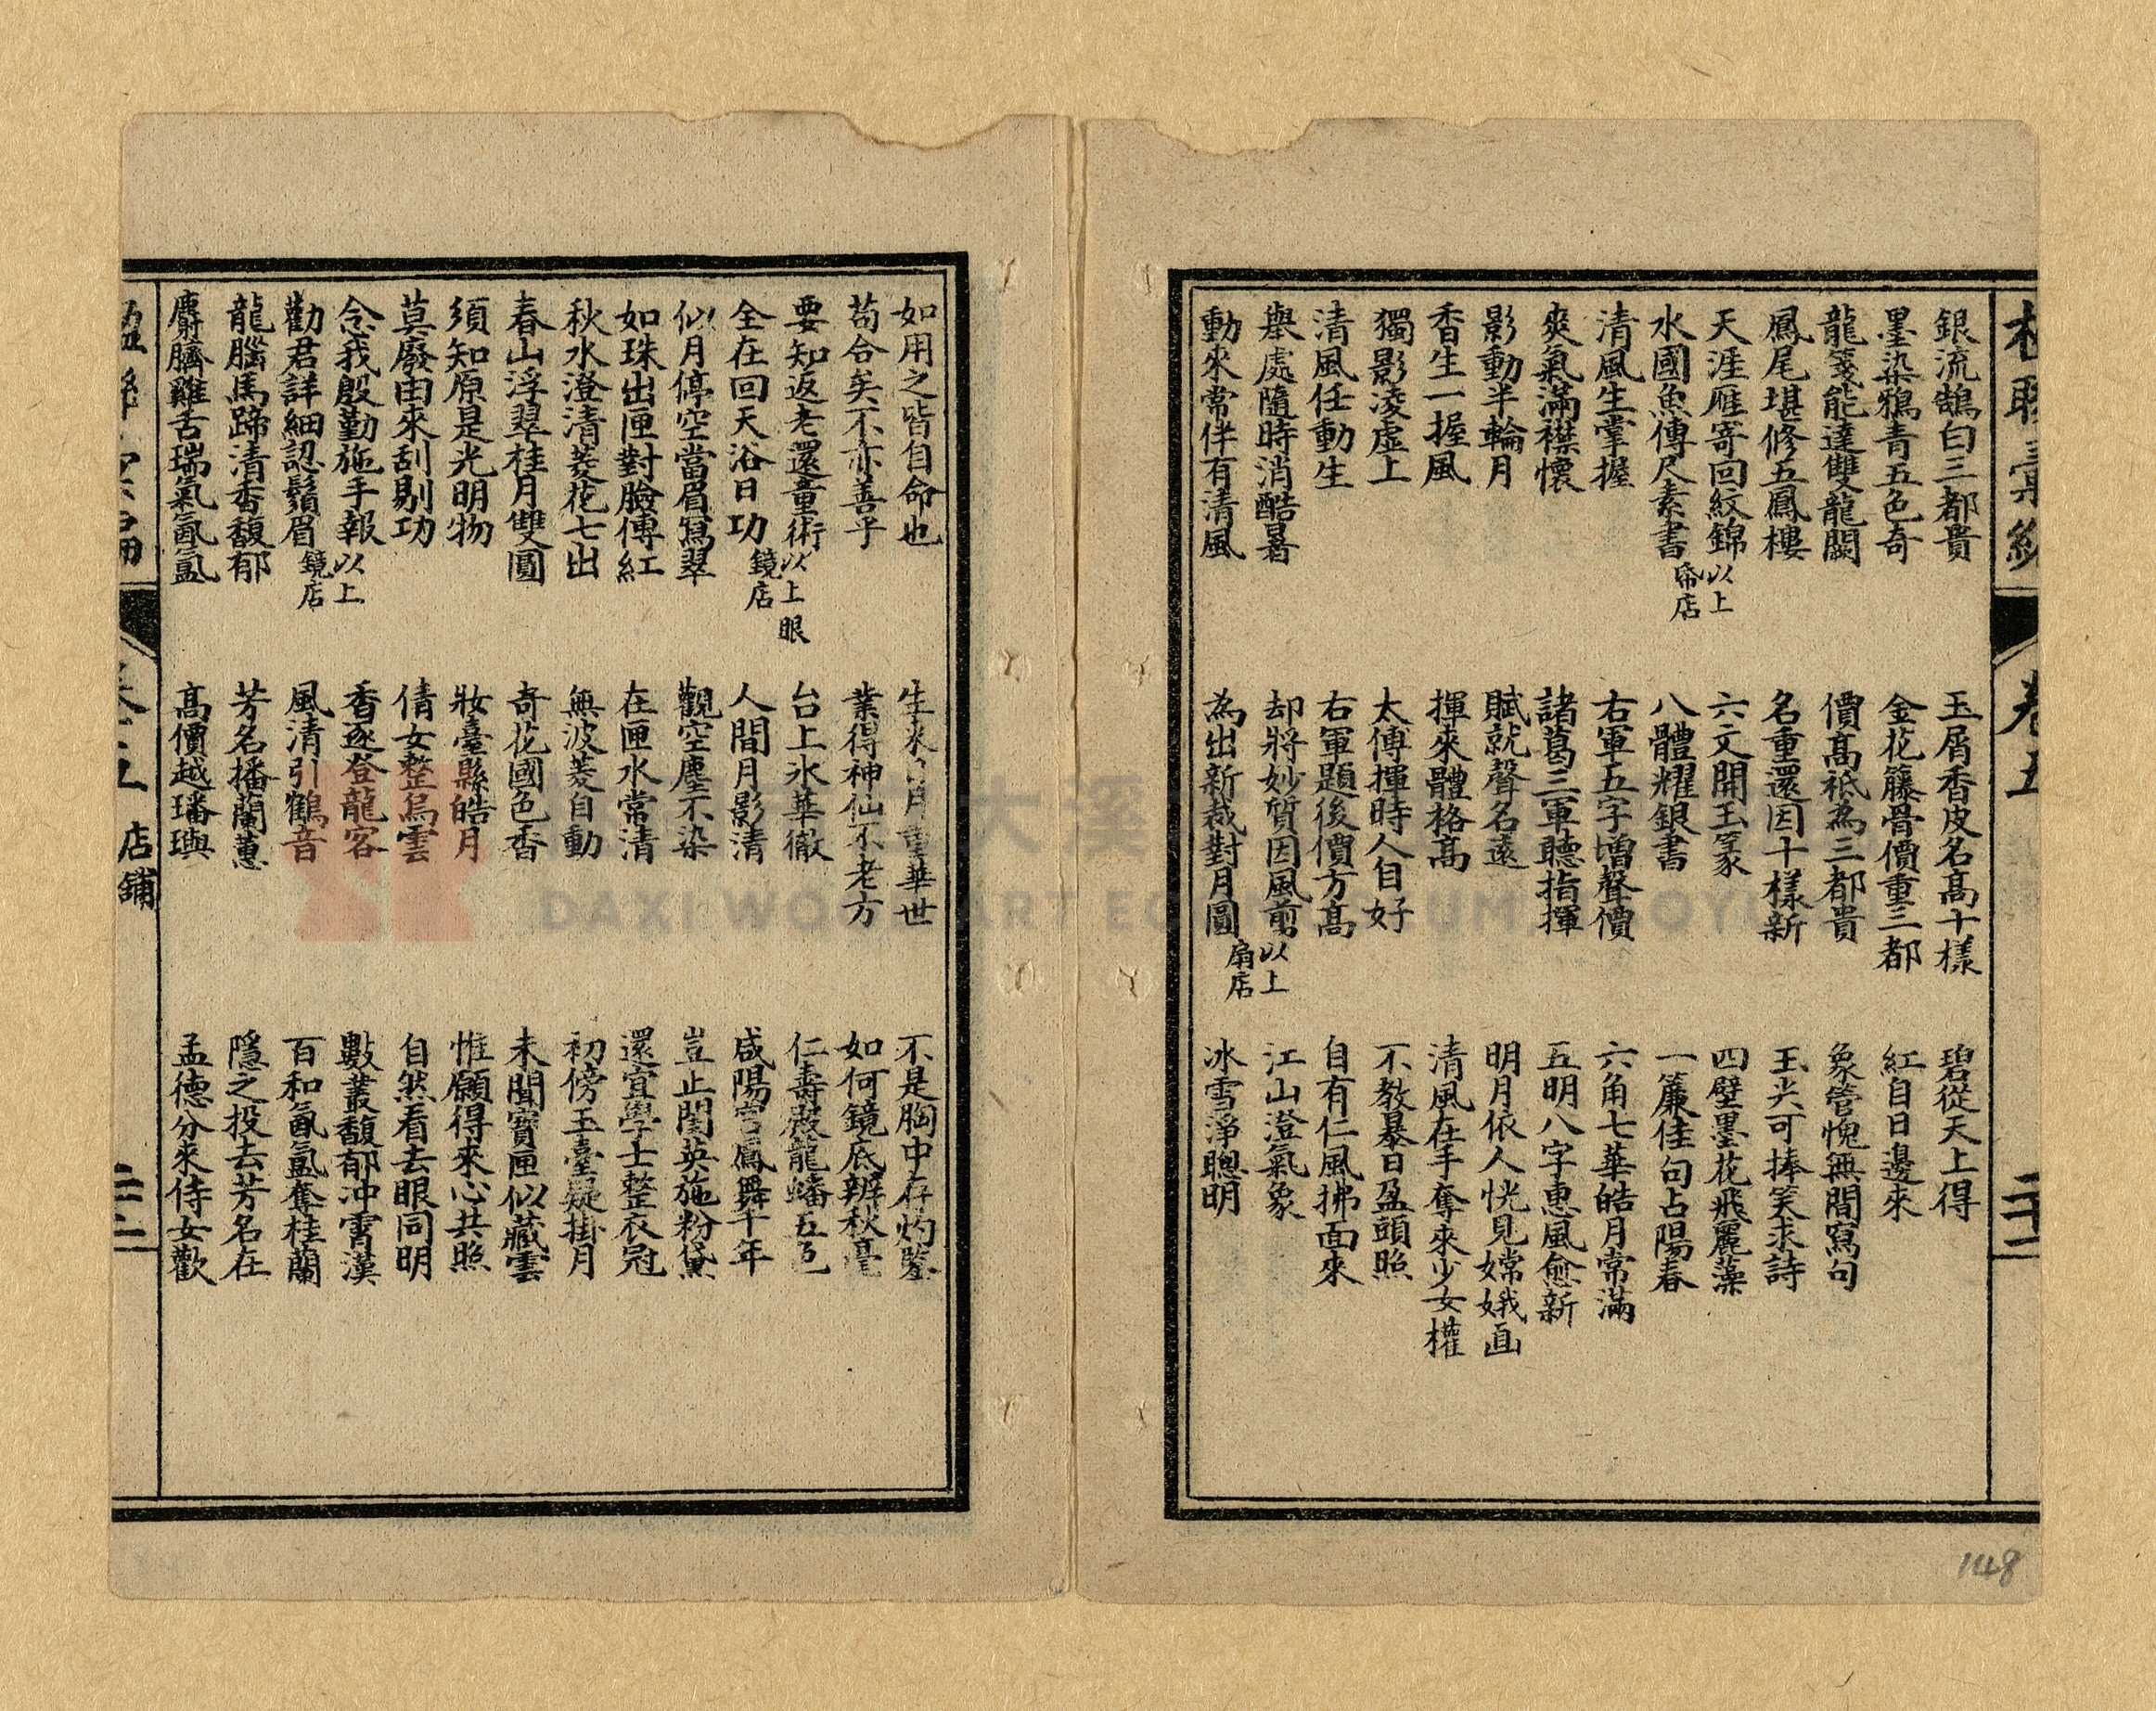 卷五
二十二
銀流鵠白三都貴
墨染鴉青五色奇
龍箋能達雙龍闕
鳳尾堪修五鳳樓
天涯雁寄回紋錦
水國魚傳尺素書 以上帋店
清風生掌握
爽氣滿襟懷
影動半輪月
香生一握風
獨影凌虛上
清風任動生
舉處隨時消酷暑
動來常伴有清風
玉屑香皮名高十樣
金花籐骨價重三都
價高祗為三都貴
名重還因十樣新
六文開玉篆
八體耀銀書
右軍五字增聲價
諸葛三軍聽指揮
賦就聲名遠
揮來體格高
太傅揮時人自好
右軍題後價方高
却將妙質因風剪
為出新裁對月圓 以上扇店
碧從天上得
紅自日邊來
象管愧無間寫句
玉尖可捧笑求詩
四壁墨花飛麗藻
一簾佳句占陽春
六角七華皓月常滿
五明八字惠風愈新
明月依人恍見嫦娥画
清風在手奪來少女權
不教暴日盈頭照
自有仁風拂面來
江山澄氣象
冰雪淨聰明
如用之皆自命也
苟合矣不亦善乎
要知返老還童術
全在回天浴日功 以上眼鏡店
仙月停空當眉寫翠
如珠出匣對臉傳紅
秋水澄清菱花七出
春山浮翠桂月雙圓
須知原是光明物
莫廢由來刮剔功
念我殷勤施手報
勸君詳細認鬚眉 以上鏡店
龍腦馬蹄清香馥郁
麝臍雞舌瑞氣氤氳
生來 月重華世
業得神仙不老方
台上氷華徹
人間月影清
觀空塵不染
在匣水常清
無波菱自動
奇花國色香
妝臺縣皓月
倩女整烏雲
香逐登龍客
風清引鶴音
芳名播蘭蕙
高價越璠璵
不是胸中存灼鑒
如何鏡底辨秋毫
仁壽殿龍蟠五色
咸陽宮鳳舞千年
豈止閨英施粉黛
還宜學士整衣冠
初傍玉臺疑掛月
未聞寶匣似藏雲
惟願得來心共照
自然看去眼同明
數叢馥郁沖霄漢
百和氤氳奪桂蘭
隱之投去芳名在
孟德分來侍女歡
店鋪
二十二
148
DAXI WOOD ART ECOMUSEUM